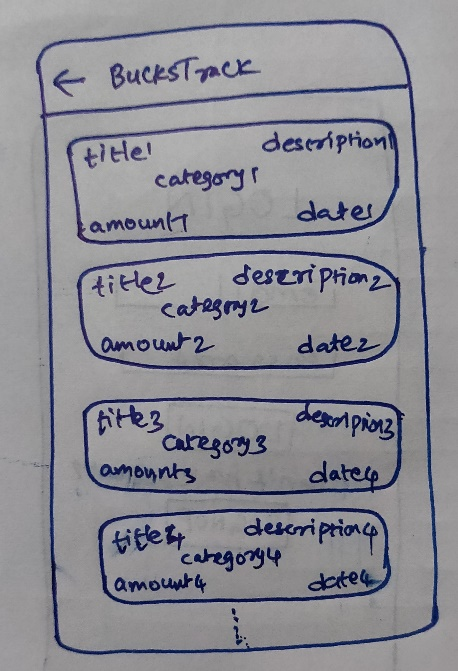 ← BUCKSTrack
title1 description1
category1
amount1 date1
title2 description2
category2
amount2 date2
title3 descripion3
category3
amount3 date4
title4 description4
category4
amount4 date4